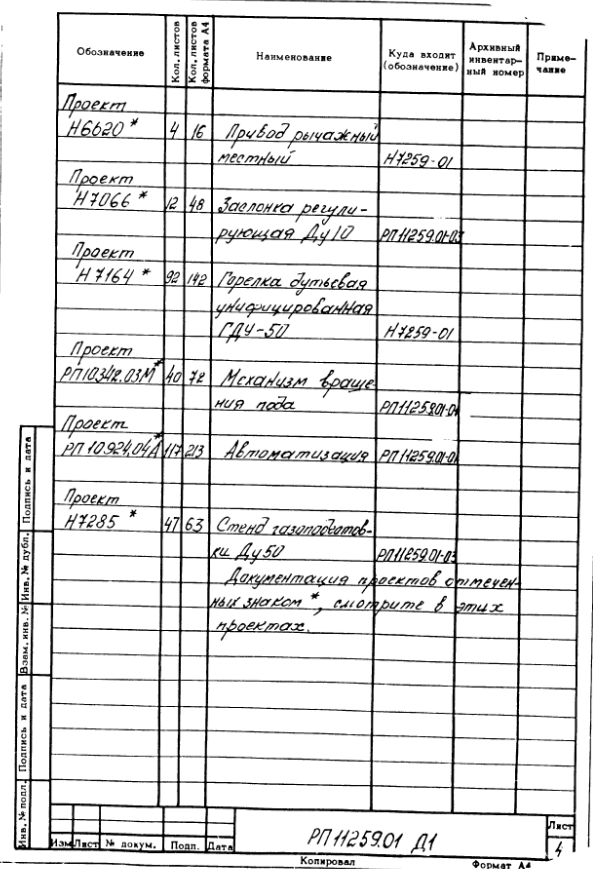 Обозначение Кол. листов Кол. листов формата А4 Наименование Куда входит (обозначение) Архивный инвентарный номер Примечание
Проект
Н6620 * 4 16 Привод рычажный
местный Н7259-01
Проект
Н7066 * 12 48 Заслонка регули-
рующая Ду10 РП11259.01-03
Проект
Н7164 * 92 142 Горелка дутьевая
унифицированная
ГДУ-50 Н7259-01
Проект
РП10342.03М * 40 72 Механизм враще
ния пода РП11259.01-04
Проект
РП10924.04А * 117 213 Автоматизация РП11259.01-01
Проект
Н7285 * 47 63 Стенд газоподготов-
ки Ду50 РП11259.01-03
Документация проектов отмечен-
ных знаком *, смотрите в этих
проектах.
Инв. № подл. Подпись и дата Взам. инв. № Инв. № дубл. Подпись и дата
РП11259.01 Д1
Лист
4
Изм Лист № докум. Подп. Дата
Копировал Формат А4